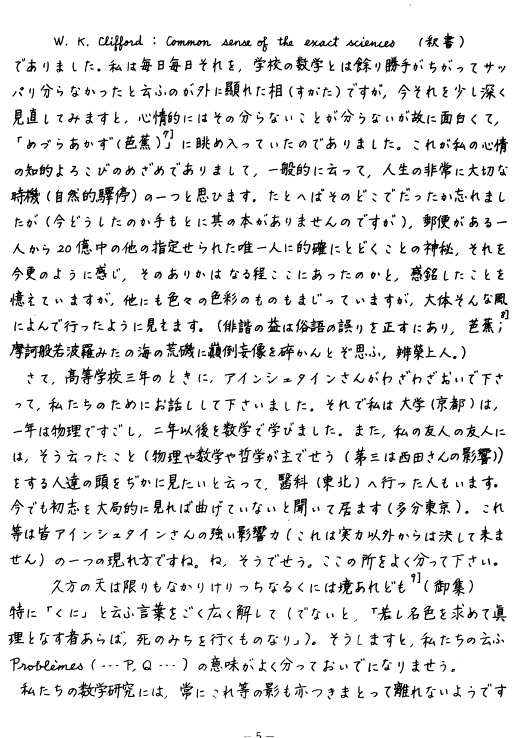 W. K. Clifford : Common sense of the exact sciences （釈書）
でありました。私は毎日毎日それを，学校の数学とは餘り勝手がちがってサッ
パリ分らなかったと云ふのが外に顕れた相（すがた）ですが，今それを少し深く
見直してみますと，心情的にはその分らないことが分らないが故に面白くて，
「めづらあかず（芭蕉）7]」に眺め入っていたのでありました。これが私の心情
の知的よろこびのめざめでありまして，一般的に云って，人生の非常に大切な
時機（自然的驛停）の一つと思ひます。たとへばそのどこでだったか忘れまし
たが（今どうしたのか手もとに其の本がありませんのですが），郵便がある一
人から20億中の他の指定せられた唯一人に的確にとどくことの神秘，それを
今更のように感じ，そのありかは なる程ここにあったのかと，感銘したことを
憶えていますが，他にも色々の色彩のものもまじっていますが，大体そんな風
によんで行ったように見えます。（俳諧の益は俗語の誤りを正すにあり，芭蕉；8]
摩訶般若波羅みたの海の荒磯に顛倒妄像を碎かんとぞ思ふ，辨榮上人。）
さて，高等学校三年のときに，アインシュタインさんがわざわざおいで下さ
って，私たちのためにお話しして下さいました。それで私は大学（京都）は，
一年は物理ですごし，二年以後を数学で学びました。また，私の友人の友人に
は，そう云ったこと（物理や数学や哲学が主でせう（第三は西田さんの影響））
をする人達の頭をぢかに見たいと云って，醫科（東北）へ行った人もいます。
今でも初志を大局的に見れば曲げていないと聞いて居ます（多分東京）。これ
等は皆アインシュタインさんの強い影響力（これは実力以外からは決して来ま
せん）の一つの現れ方ですね。ね，そうでせう。ここの所をよく分って下さい。
久方の天は限りもなかりけりっちなるくには境あれども9]（御集）
特に「くに」と云ふ言葉をごく広く解して（でないと，「若し名色を求めて眞
理となす者あらば，死のみちを行くものなり」）。そうしますと，私たちの云ふ
Problèmes（…P, Q…）の意味がよく分っておいでになりませう。
私たちの数学研究には，常にこれ等の影も亦つきまとって離れないようです
— 5 —